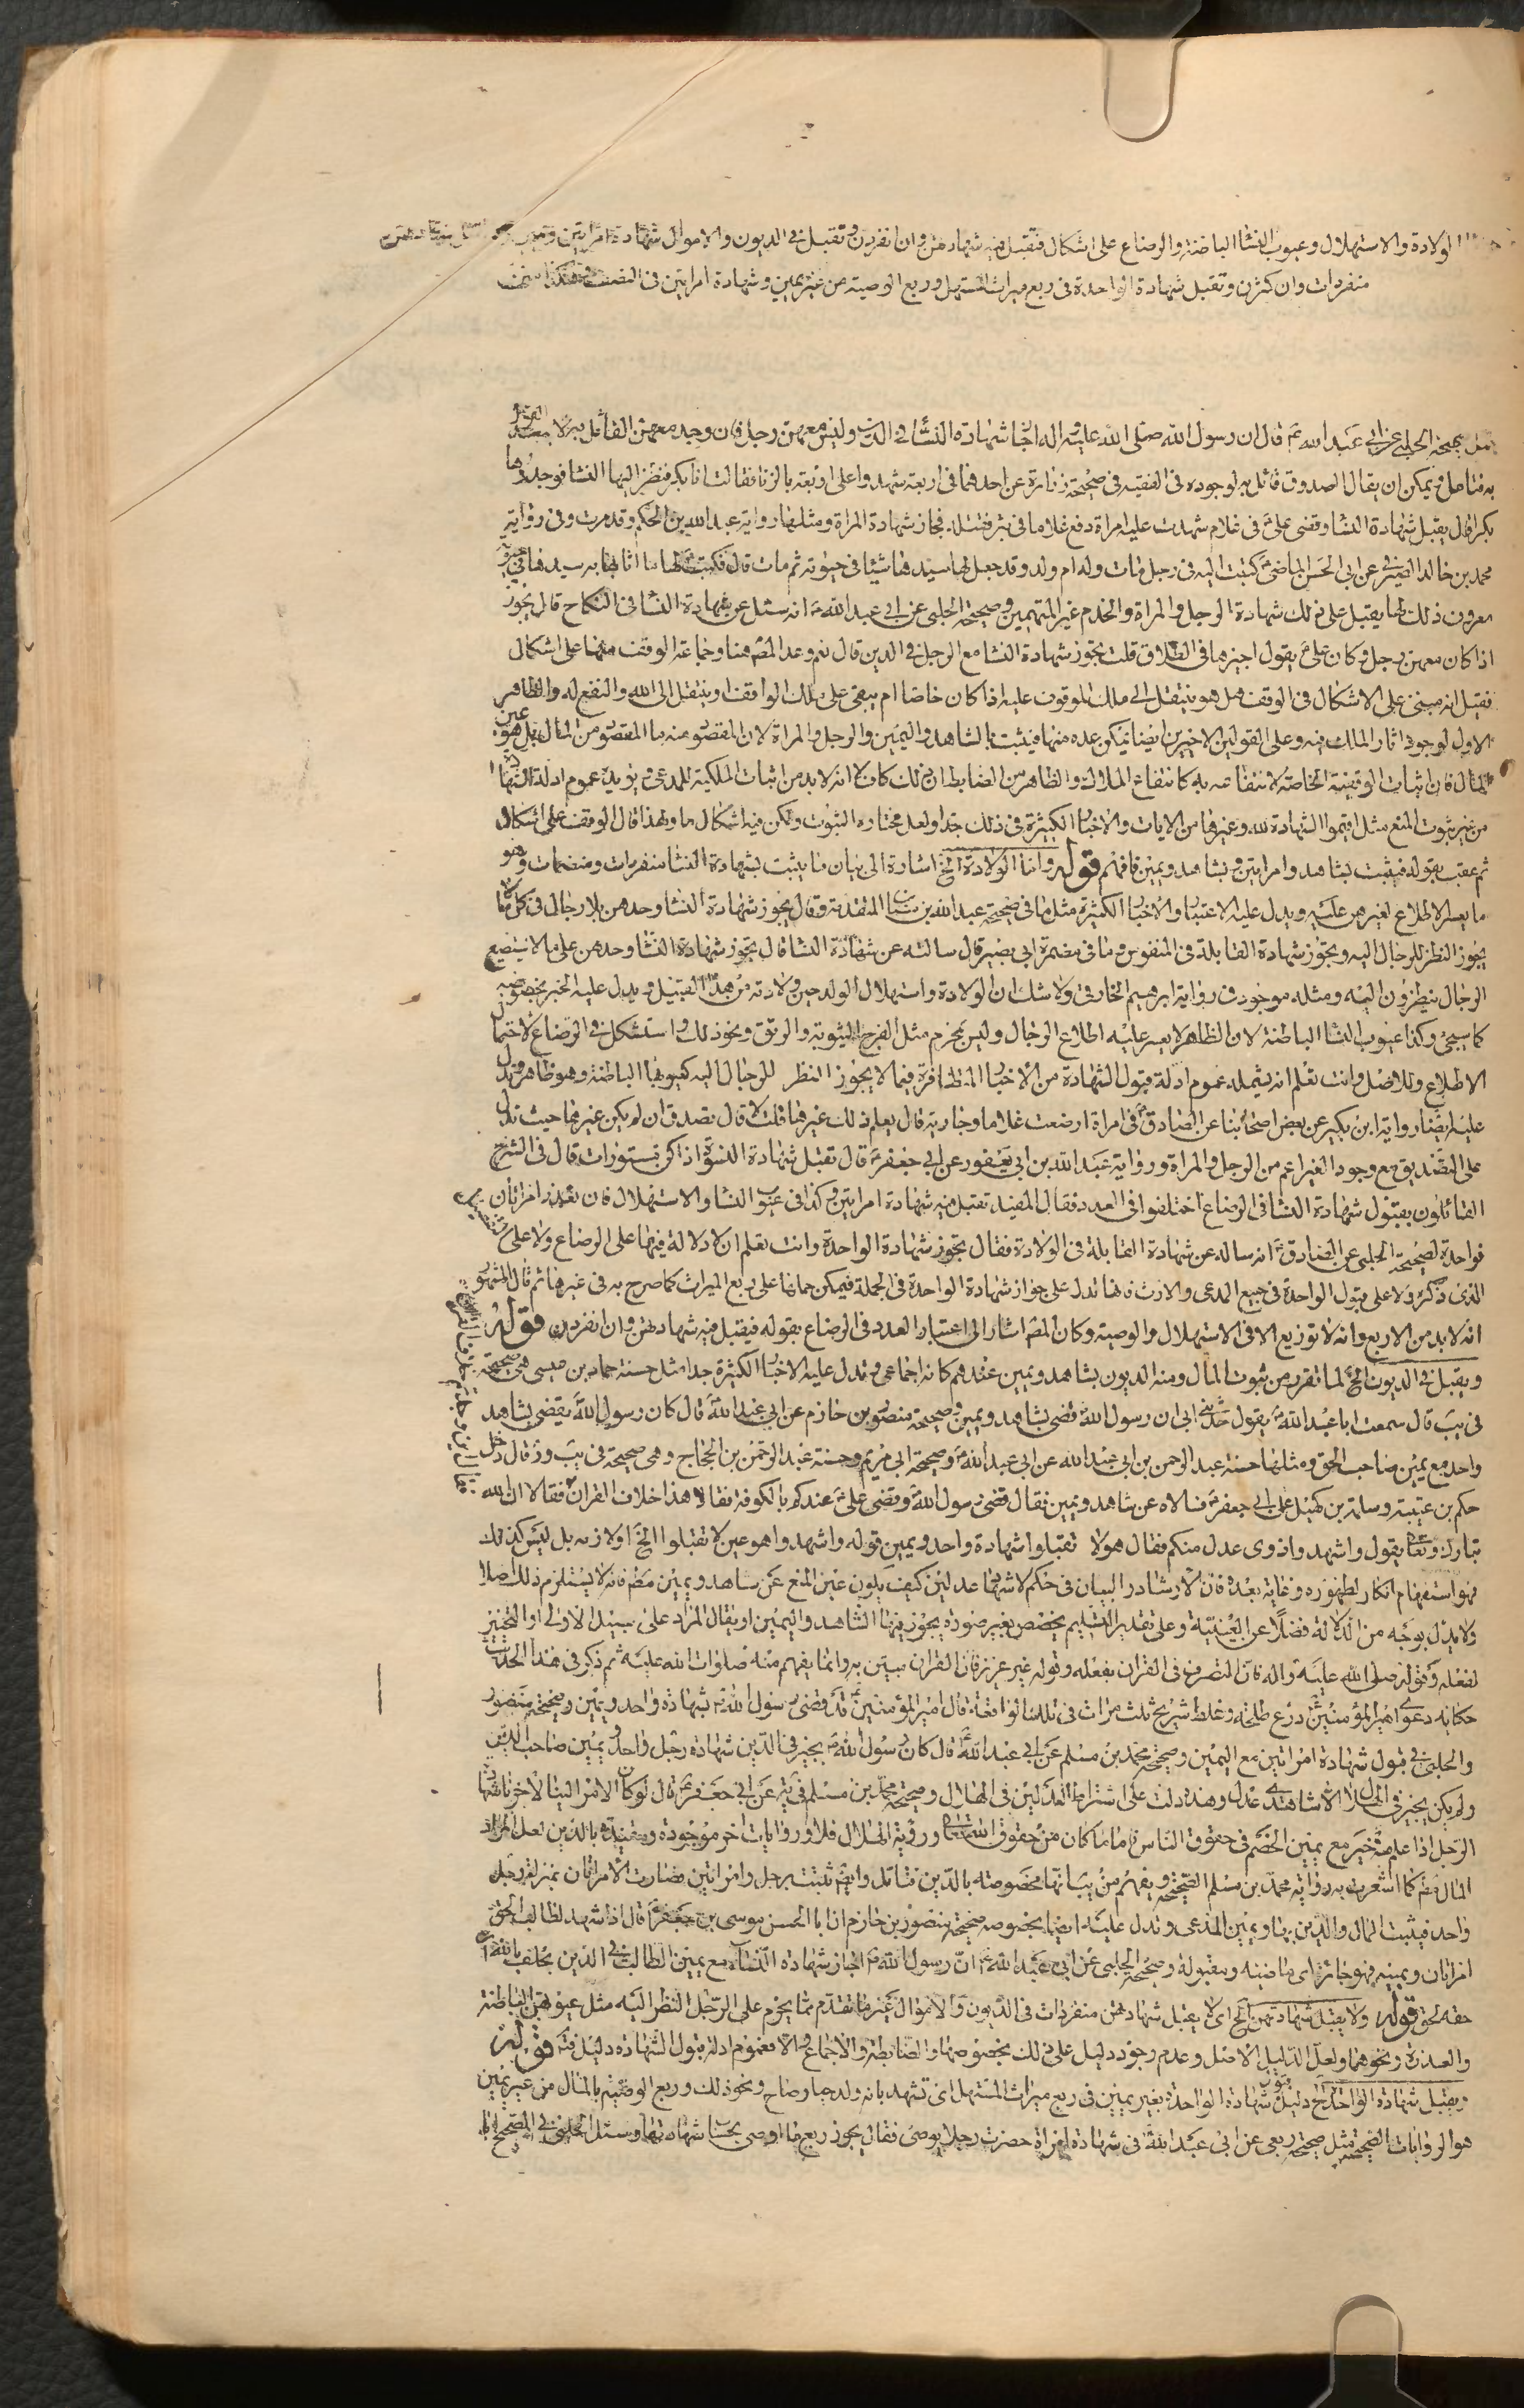 الولادة والاستهلال وعيوب النسا الباطنة والرضاع على اشكال فتقبل فيه شهادتهن وان انفردن وتقبل في الديون والاموال شهادة امراتين ويمين
منفردات وان كثرن وتقبل شهادة الواحدة في ربع ميراث المستهل وربع الوصية من غير يمين وشهادة امراتين في النصف وهكذا
صحيحة الحلبي عن ابي عبد الله ع قال ان رسول الله صلى الله عليه واله اجاز شهادة النسا في الدين وليس معهن رجل فان وجد معهن القائل به
به فتامل ويمكن ان يقال الصدوق قائل به لوجوده في الفقيه في صحيحة زرارة عن احدهما في اربعة شهدوا على امراة بالزنا فقالت انا بكر فنظر اليها النسا فوجدوها
بكرا قال يقبل شهادة النسا وقضى علي ع في غلام شهدت عليه امراة دفع غلاما في بئر فقتله فجاز شهادة المراة ومثلها رواية عبد الله بن الحكم وقد مرت وفي رواية
محمد بن خالد الصيرفي عن ابي الحسن الماضي ع كتبت اليه في رجل مات وله ام ولد وقد جعل لها سيدها شيئا في حيوته ثم مات قال فكتب لها ما اثابها به سيدها في حيوته
معروف ذلك لها يقبل على ذلك شهادة الرجل والمراة والخدم غير المتهمين وصحيحة الحلبي عن ابي عبد الله ع انه سئل عن شهادة النسا في النكاح قال يجوز
اذا كان معهن رجل وكان علي ع يقول لا اجيزها في الطلاق قلت يجوز شهادة النسا مع الرجل في الدين قال نعم وعد المص هنا وجماعة الوقف منها على اشكال
فقيل انه مبني على الاشكال في الوقف هل هو ينتقل الى ملك الموقوف عليه اذا كان خاصا ام يبقى على ملك الواقف او ينتقل الى الله والنفع له والظاهر
الاول لوجود اثار الملك فيه وعلى القولين الاخيرين ايضا يمكن عده منها فيثبت بالشاهد واليمين والرجل والمراة لان المقصود منه ما المقصود من المال بل هو عين
المال فان اثبات الوقفية الخاصة لانتفاعه به كانتفاع الملاك والظاهر من الضابط ان ذلك كاف لا انه لا بد من اثبات الملكية للمدعي ويؤيده عموم ادلة الشهادة
من غير ثبوت المنع مثل اقيموا الشهادة لله وغيرها من الايات والاخبار الكثيرة في ذلك جدا ولعل مختاره الثبوت ولكن فيه اشكال ما ولهذا قال الوقف على اشكال
ثم عقب بقوله فيثبت بشاهد وامراتين وبشاهد ويمين فافهم قوله واما الولادة الخ اشارة الى بيان ما يثبت بشهادة النسا منفردات ومنضمات وهو
ما يعسر الاطلاع لغيرهن عليه ويدل عليه الاعتبار والاخبار الكثيرة مثل ما في صحيحة عبد الله بن سنان المتقدمة وقال يجوز شهادة النسا وحدهن بلا رجال في كل ما لا
يجوز النظر للرجال اليه ويجوز شهادة القابلة في المنفوس وما في مضمرة ابي بصير قال سالته عن شهادة النسا قال يجوز شهادة النسا وحدهن على ما لا يستطيع
الرجال ينظرون اليه ومثله موجود في رواية ابرهيم الخارقي ولا شك ان الولادة واستهلال الولد حين ولادته من هذا القبيل ويدل عليه الخبر بخصوصه
كما سيجئ وكذا عيوب النسا الباطنة لان الظاهر لا يعسر عليه اطلاع الرجال وليس بمحرم مثل الفرج الثيوبة والرتق ونحو ذلك واستشكل في الرضاع لاحتمال
الاطلاع وللاصل وانت تعلم انه يشمله عموم ادلة قبول الشهادة من الاخبار المتظافرة فيما لا يجوز النظر للرجال اليه كعيوبها الباطنة وهو ظاهر ويدل
عليه ايضا رواية ابن بكير عن بعض اصحابنا عن الصادق ع في امراة ارضعت غلاما وجارية قال يعلم ذلك غيرها قلت لا قال تصدق ان لم يكن غيرها حيث تدل
على التصديق مع وجود الغير اعم من الرجل والمراة ورواية عبد الله بن ابي يعفور عن ابي جعفر ع قال تقبل شهادة النسوة اذا كن مستورات قال في الشرح
القائلون بقبول شهادة النسا في الرضاع اختلفوا في العدد فقال المفيد تقبل فيه شهادة امراتين وكذا في عيوب النسا والاستهلال فان تعذر امراتان
فواحدة لصحيحة الحلبي عن الصادق ع انه ساله عن شهادة القابلة في الولادة فقال يجوز شهادة الواحدة وانت تعلم ان لا دلالة فيها على الرضاع ولا على التفصيل
الذي ذكره ولا على قبول الواحدة في جميع المدعى والارث فانها تدل على جواز شهادة الواحدة في الجملة فيمكن حملها على ربع الميراث كما صرح به في غيرها ثم قال المشهور
انه لا بد من الاربع وانه لا توزيع الا في الاستهلال والوصية وكان المص اشار الى اعتبار العدد في الرضاع بقوله فيقبل فيه شهادتهن وان انفردن قوله
ويقبل في الديون الخ لما تقرر من ثبوت المال ومنه الديون بشاهد ويمين عندهم كانه اجماعي وتدل عليه الاخبار الكثيرة جدا مثل حسنة حماد بن عيسى وهي صحيحة
في يب قال سمعت ابا عبد الله ع يقول حدثني ابي ان رسول الله قضى بشاهد ويمين وصحيحة منصور بن حازم عن ابي عبد الله ع قال كان رسول الله يقضي بشاهد
واحد مع يمين صاحب الحق ومثلها حسنة عبد الرحمن بن ابي عبد الله عن ابي عبد الله ع وصحيحة ابي مريم وحسنة عبد الرحمن بن الحجاج وهي صحيحة في يب قال دخل
حكم بن عتيبة وسلمة بن كهيل على ابي جعفر ع فسالاه عن شاهد ويمين فقال قضى رسول الله وقضى علي ع عندكم بالكوفة فقالا هذا خلاف القران فقالا ان الله
تبارك وتعالى يقول واشهدوا ذوى عدل منكم فقال هو لا تقبلوا شهادة واحد ويمين قوله واشهدوا هو عين لا تقبلوا الخ اولا زمه بل ليس كذلك
فهو استفهام انكار لظهوره وغاية بعده فان الارشاد والبيان في حكم لاشهاد عدلين كيف يكون عين المنع عن شاهد ويمين مطم فانه لا يستلزم ذلك اصلا
ولا يدل بوجه من الدلالة فضلا عن العينية وعلى تقدير التسليم يخصص بغير صورة يجوز فيها الشاهد واليمين او يقال المراد على سبيل الاولى او التخيير
لفعله وقوله صلى الله عليه واله فان التصرف في القران بفعله وقوله غير عزيز فان القران مبين به وانما يفهم منه صلوات الله عليه ثم ذكر في هذا الحديث
حكاية دعوى امير المؤمنين ع درع طلحة وغلط شريح ثلث مرات في تلك الواقعة قال امير المؤمنين ع قد قضى رسول الله ص بشهادة واحد ويمين وصحيحة منصور
والحلبي في قبول شهادة امراتين مع اليمين وصحيحة محمد بن مسلم عن ابي عبد الله ع قال كان رسول الله ص يجيز في الدين شهادة رجل واحد ويمين صاحب الدين
ولم يكن يجيز في الهلال الا شاهدى عدل وهذه دلت على اشتراط العدلين في الهلال وصحيحة محمد بن مسلم في يه عن ابي جعفر ع قال لو كان الامر الينا لاجزنا شهادة
الرجل اذا علم منه خير مع يمين الخصم في حقوق الناس فاما ما كان من حقوق الله تعالى ورؤية الهلال فلا وروايات اخر موجودة ومقيدة بالدين لعل المراد
المال مطم كما اشعرت به رواية محمد بن مسلم الصحيحة ويفهم من بيانها مخصوصة بالدين فتامل وايضم ثبتت برجل وامراتين فصارت الامراتان بمنزلة رجل
واحد فيثبت المال والدين بهما ويمين المدعي وتدل عليه ايضا بخصوصه صحيحة منصور بن حازم ان ابا الحسن موسى بن جعفر ع قال اذا شهد لطالب الحق
امراتان ويمينه فهو جائز اى ماضية ومقبولة وصحيحة الحلبي عن ابي عبد الله ع ان رسول الله ص اجاز شهادة النسا مع يمين الطالب في الدين يحلف بالله ان
حقه لحق قوله ولا يقبل شهادتهن الخ اى لا يقبل شهادتهن منفردات في الديون والاموال غير ما تقدم مما يحرم على الرجل النظر اليه مثل عيوبهن الباطنة
والعذرة ونحوهما ولعل الدليل الاصل وعدم وجود دليل على ذلك بخصوصها والضابطة والاجماع والا فعموم ادلة قبول الشهادة دليل فتم قوله
ويقبل شهادة الواحدة الخ دليل قبول شهادة الواحدة بغير يمين في ربع ميراث المستهل اى تشهد بانه ولد حيا وصاح ونحو ذلك وربع الوصية بالمال من غير يمين
هو الروايات الصحيحة مثل صحيحة ربعي عن ابي عبد الله ع في شهادة امراة حضرت رجلا يوصى فقال يجوز ربع ما اوصى بحساب شهادتها وسئل الحلبي في الصحيح